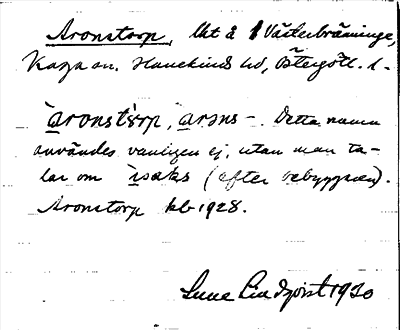 Aronstorp, lht å Västerbränninge,
Kaga sn. Hanekinds hd, Östergötl. l.
àronstŏrp, àrəns-. Detta namn
användes vanligen ej, utan man ta-
lar om ìsaks (efter bebyggaren).
Aronstorp kb 1928.
Sune Lindqvist 1930